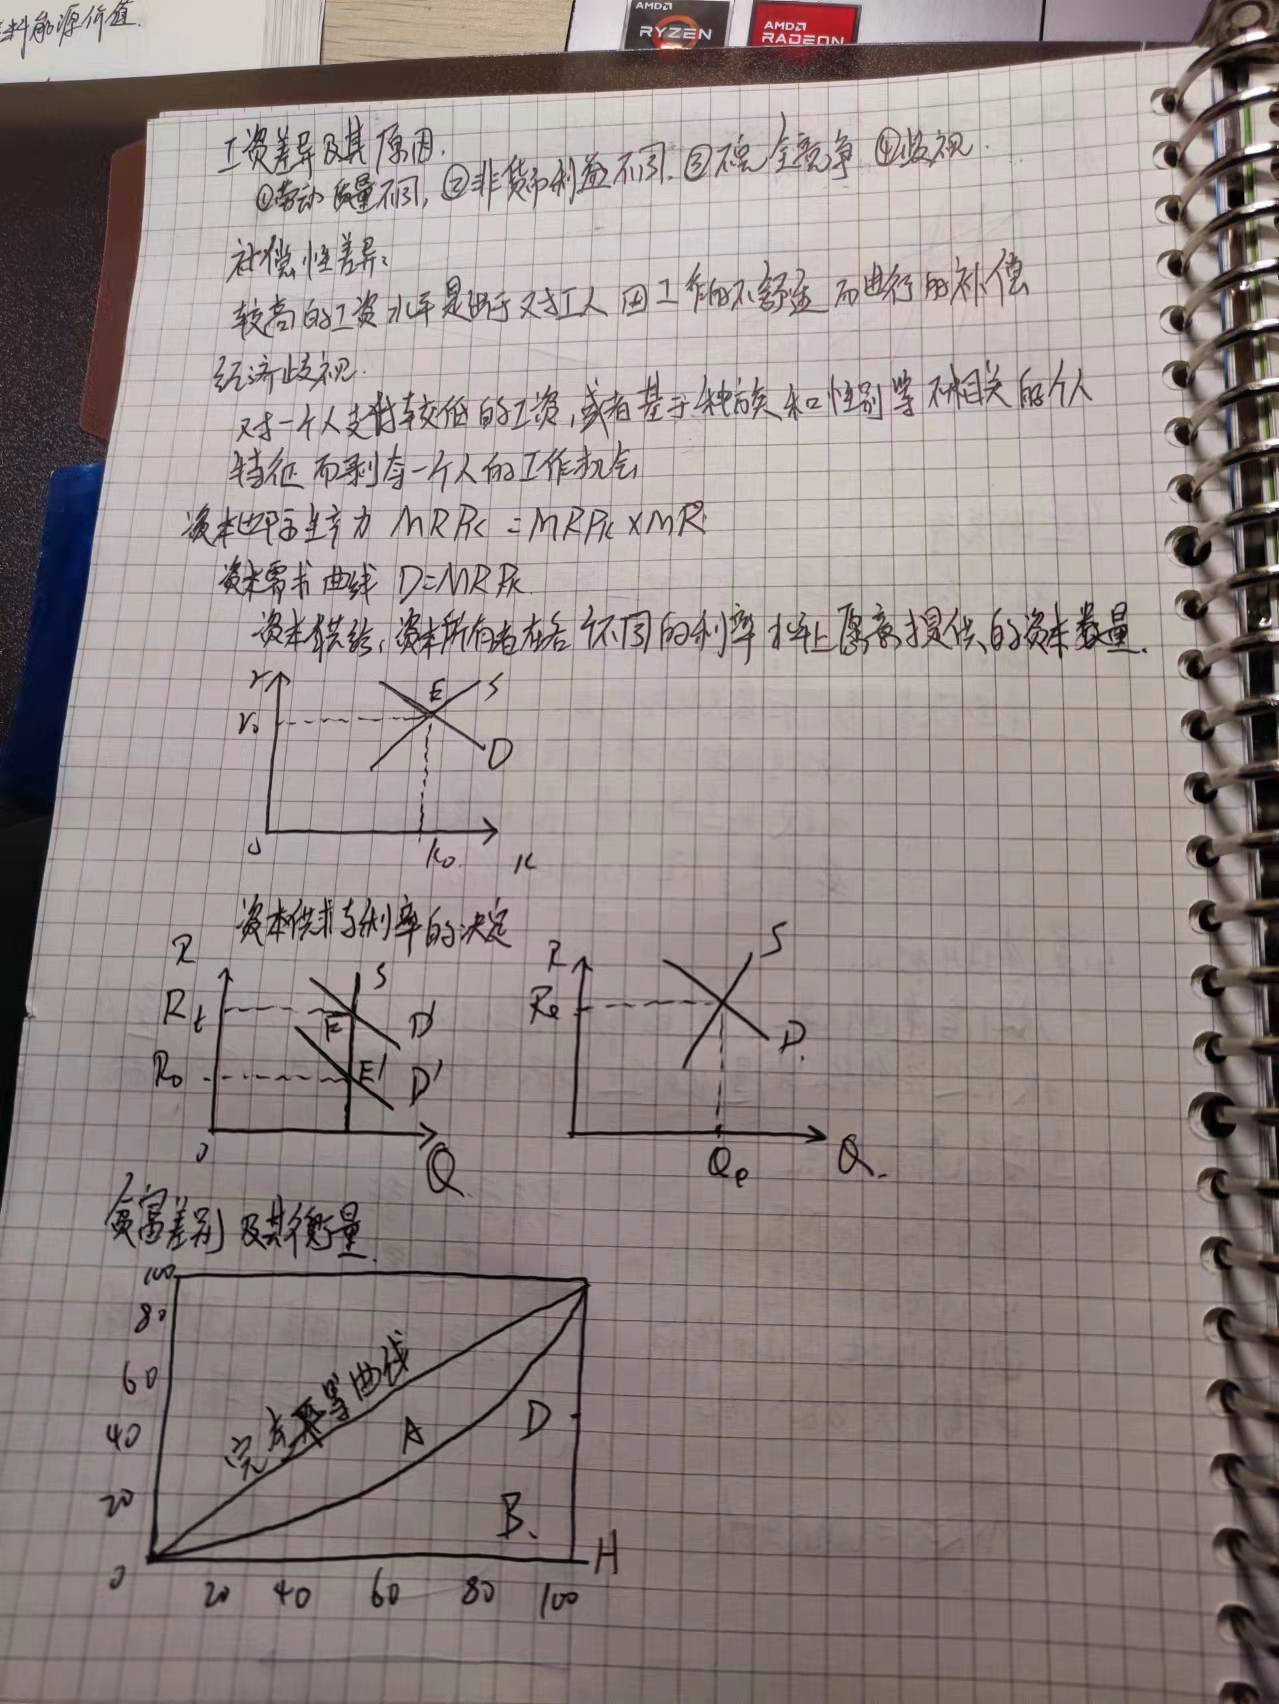 料能源价值.
AMD
RYZEN
AMD
RADEON
工资差异及其原因.
①劳动质量不同, ②非货币利益不同. ③不完全竞争 ④歧视.
补偿性差异:
较高的工资水平是出于对工人因工作的不舒适而进行的补偿
经济歧视.
对一个人支付较低的工资,或者基于种族和性别等不相关的个人
特征而剥夺一个人的工作机会
资本边际生产力 MRPK = MRPK × MR
资本需求曲线 D=MRPK.
资本供给,资本所有者在各个不同的利率水平上愿意提供的资本数量.
r
E
S
r₀
D
0
K₀.
K
资本供求与利率的决定
R
S
Rt
E
D'
R₀
E'
D'
0
Q
R
S
Re
D.
Qe
Q.
贫富差别及其衡量.
100
80
60
完全平等曲线
40
A
D
20
B.
0
H
20 40 60 80 100